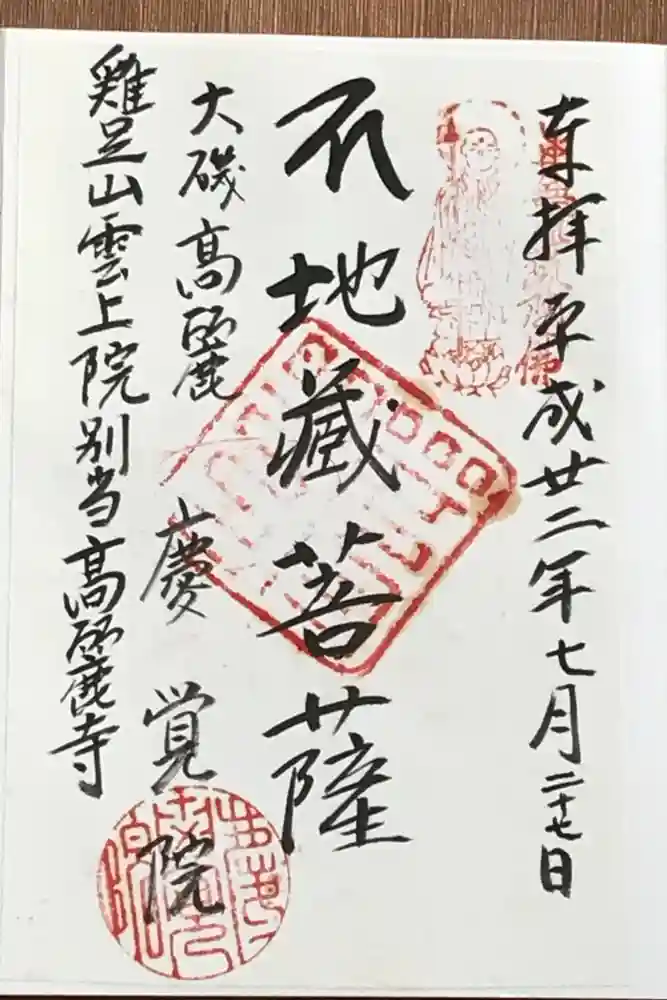 奉拝 平成廿二年七月二十七日
地蔵菩薩
大磯高麗 慶覚院
雞足山雲上院別当高麗寺